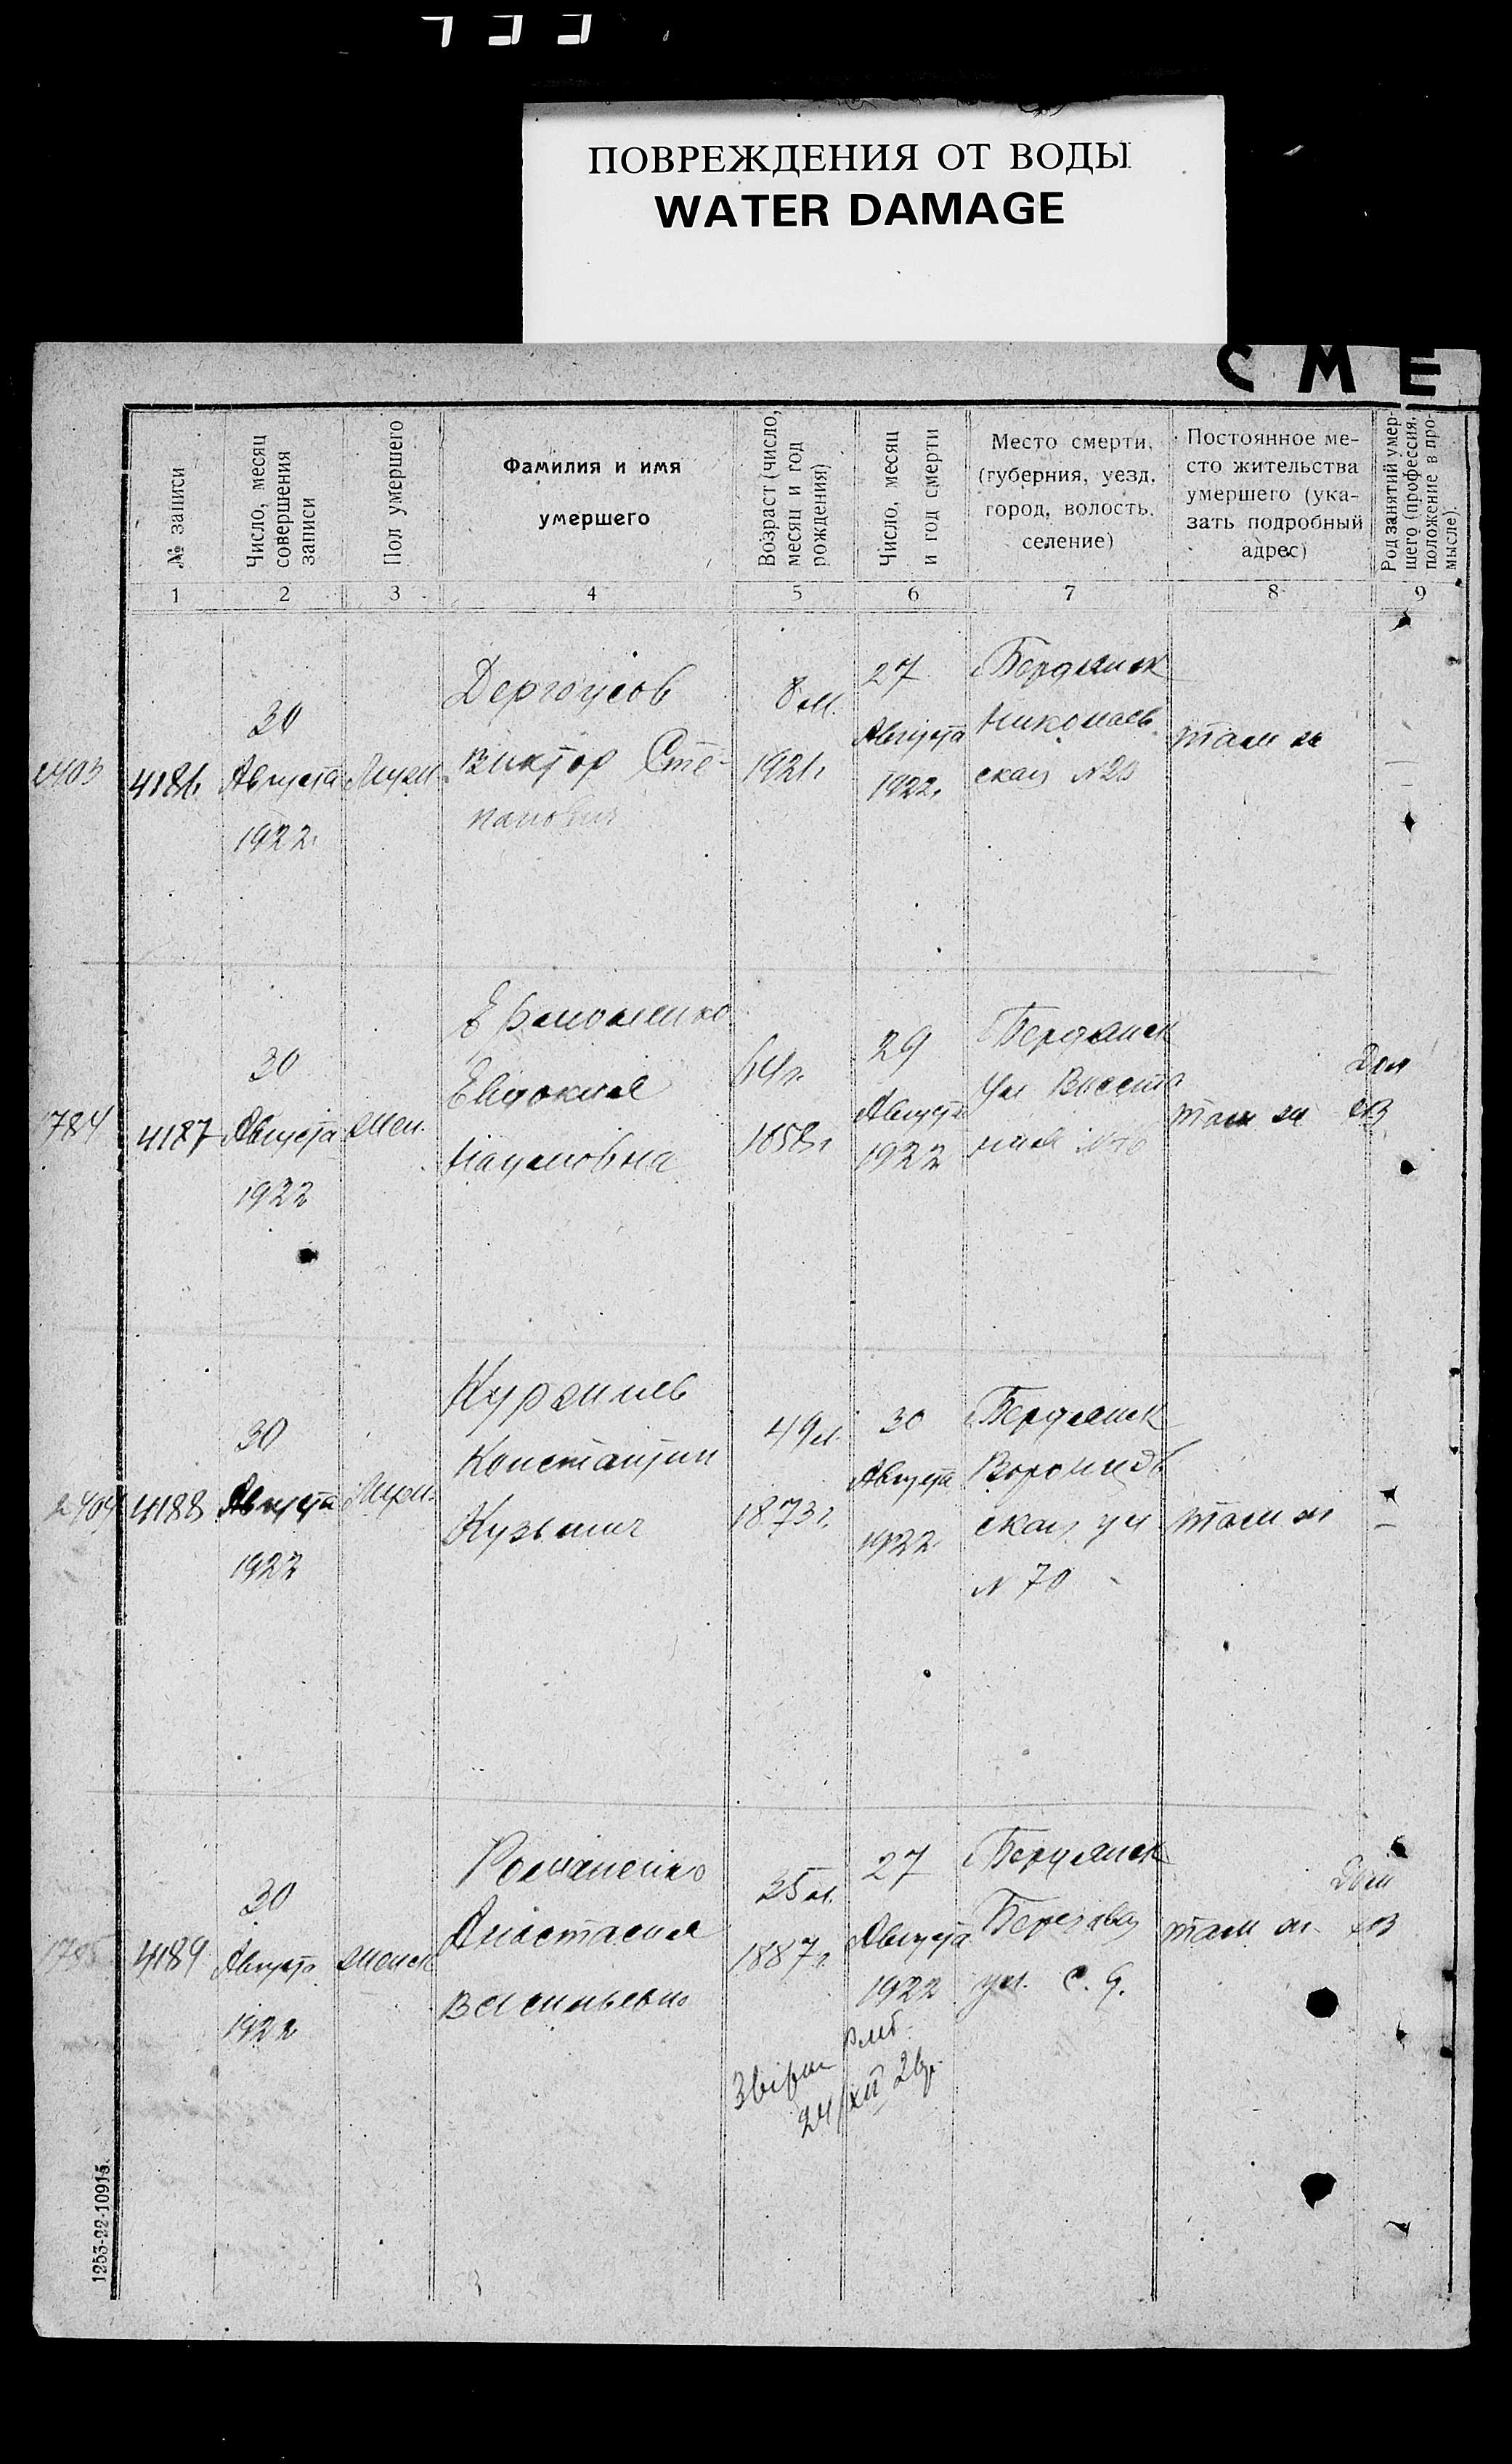 ПОВРЕЖДЕНИЯ ОТ ВОДЫ
WATER DAMAGE
СМЕ
№ записи
Число, месяц
совершения
записи
Пол умершего
Фамилия и имя
умершего
Возраст (число,
месяц и год
рождения)
Число, месяц
и год смерти
Место смерти,
(губерния, уезд,
город, волость,
селение)
Постоянное ме-
сто жительства
умершего (ука-
зать подробный
адрес)
Род занятий умер-
шего (профессия,
положение в про-
мысле).
1 2 3 4 5 6 7 8 9
2403
4186
30
Августа
1922
Муж
Дергоусов
Виктор Сте-
панович
8 м.
1921г
27
Августа
1922.
Бердянск
Николаев
ская
там же
784
4187
30
Августа
1922
жен.
Евдокия
Наумовна
64г.
1858г
29
Августа
1922
Бердянск
Ул Восста
ния
там же
Дом
хоз
2404
4188
30
Августа
1922
Муж
Константин
Кузьмич
49л.
1873г.
30
Августа
1922
Бердянск
Воронцов
ская ул
N 70
там же
1785
4189
30
Августа
1922
женск
Романенко
Анастасия
Васильевна
35 л.
1887г.
27
Августа
1922
Бердянск
Березовая
ул. с. д.
там же
Дом
хоз
24/XII 26р.
1253-22-10915.